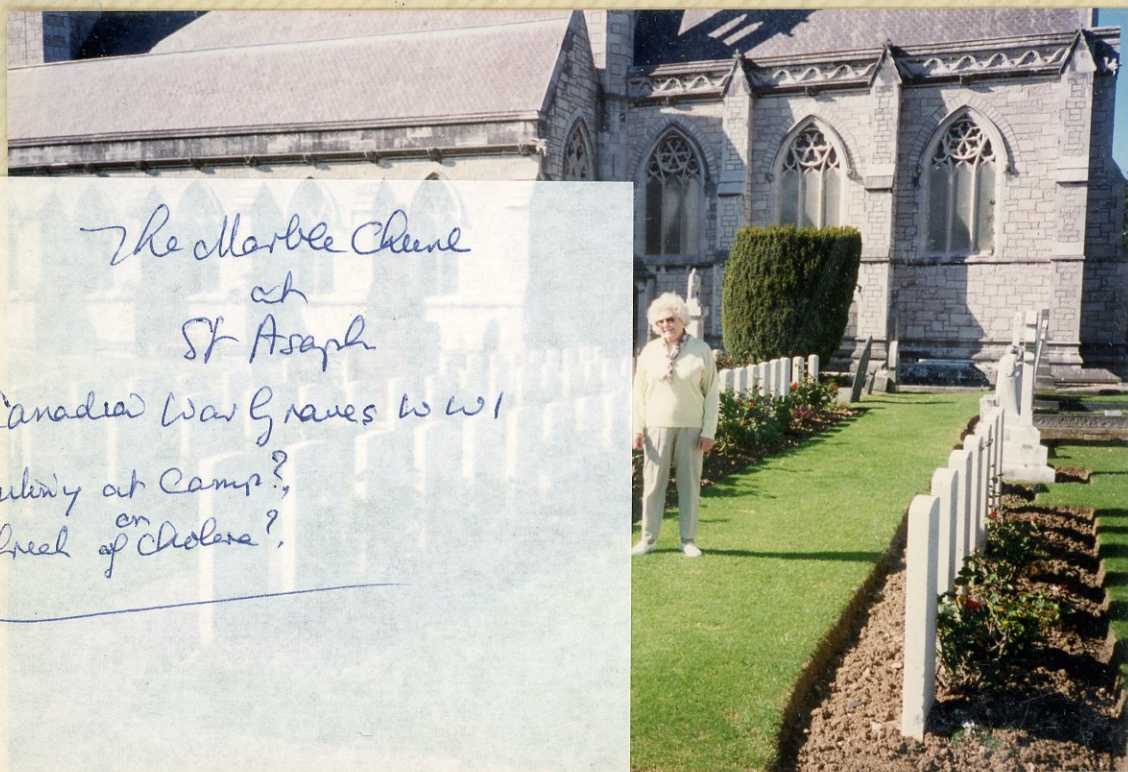 The Marble Church
at
St Asaph
Canadian War Graves WW1
at Camp?
or
of Cholera?